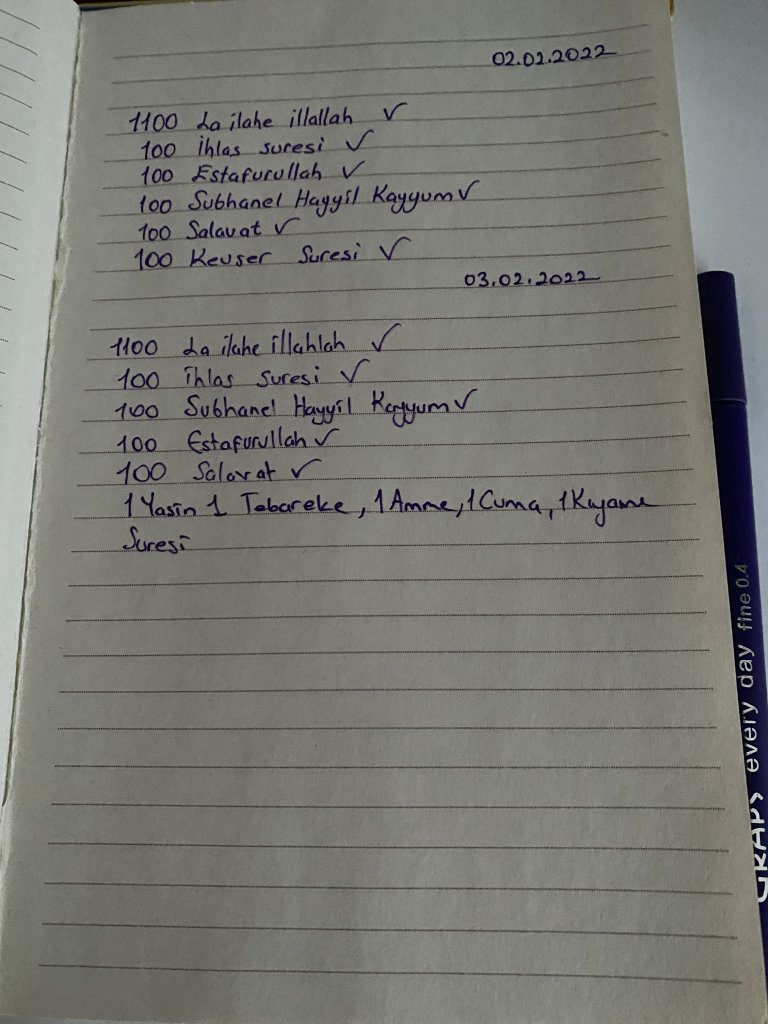 02.02.2022
1100 La ilahe illallah ✓
100 İhlas suresi ✓
100 Estafurullah ✓
100 Subhanel Hayyil Kayyum ✓
100 Salavat ✓
100 Kevser Suresi ✓
03.02.2022
1100 La ilahe illahlah ✓
100 ihlas suresi ✓
100 Subhanel Hayyil Kayyum ✓
100 Estafurullah ✓
100 Salavat ✓
1 Yasin 1 Tebareke, 1 Amme, 1 Cuma, 1 Kıyame
Suresi
GRAPS every day fine 0.4